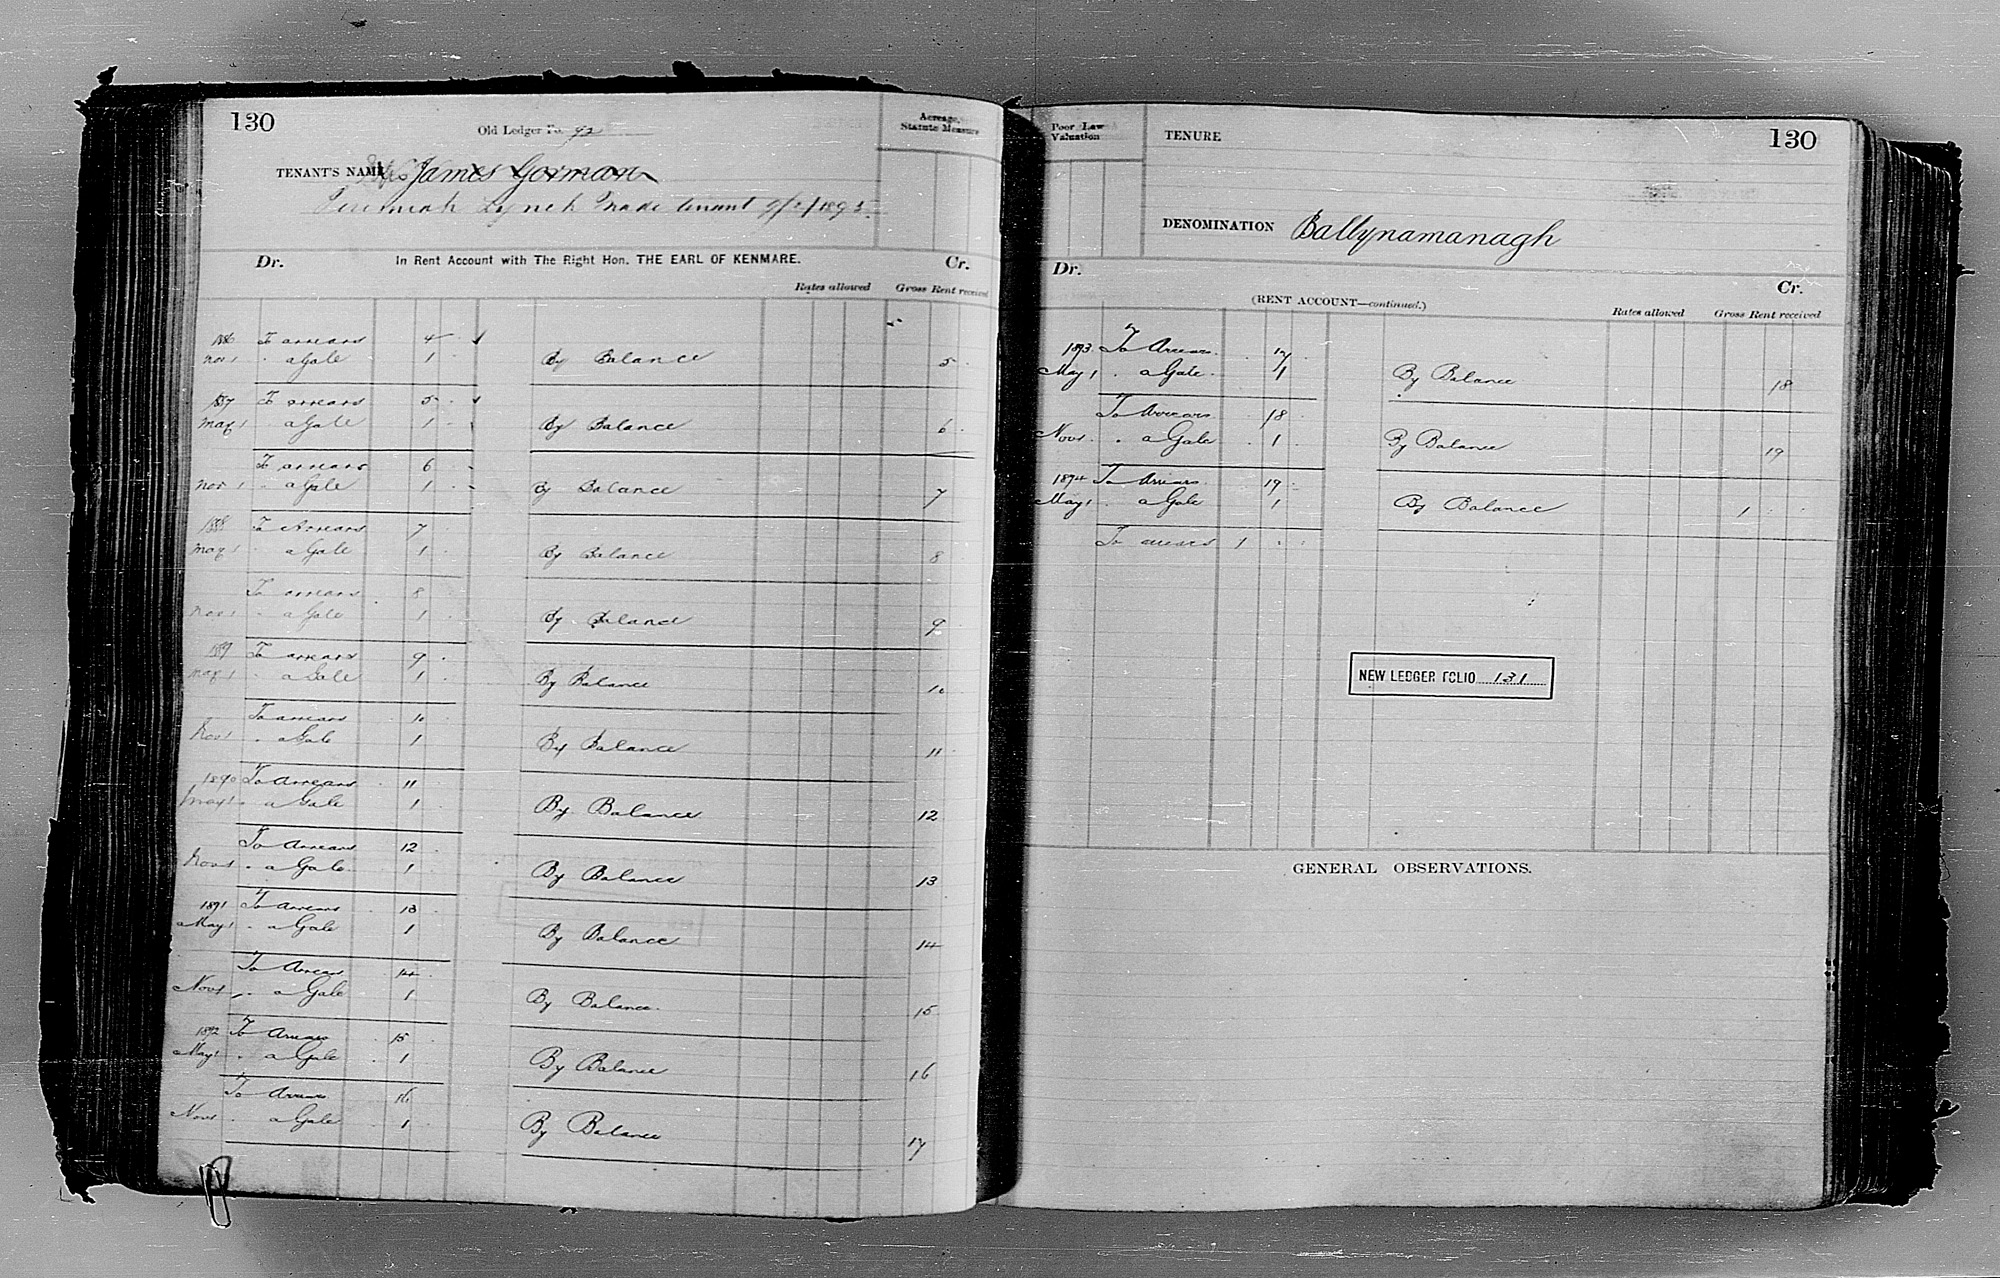 130
Old Ledger Fo. 92
Acreage, Statute Measure
TENANT'S NAME James Gorman
Jeremiah Lynch made tenant 9/2/1895.
Dr. In Rent Account with The Right Hon. THE EARL OF KENMARE. Cr.
Rates allowed Gross Rent received
1886 To arrears 4
Nov 1 " a Gale 1 By Balance 5
1887 To arrears 5
May 1 " a Gale 1 By Balance 6
To arrears 6
Nov 1 " a Gale 1 By Balance 7
1888 To Arrears 7
May 1 " a Gale 1 By Balance 8
To arrears 8
Nov 1 " a Gale 1 By Balance 9
1889 To arrears 9
May 1 " a Gale 1 By Balance 10
To arrears 10
Nov 1 " a Gale 1 By Balance 11
1890 To Arrears 11
May 1 " a Gale 1 By Balance 12
To Arrears 12
Nov 1 " a Gale 1 By Balance 13
1891 To Arrears 13
May 1 " a Gale 1 By Balance 14
To Arrears 14
Nov 1 " a Gale 1 By Balance 15
1892 To Arrears 15
May 1 " a Gale 1 By Balance 16
To Arrears 16
Nov 1 " a Gale 1 By Balance 17
Poor Law Valuation
TENURE 130
DENOMINATION Ballynamanagh
Dr. (RENT ACCOUNT—continued.) Cr.
Rates allowed Gross Rent received
1893 To Arrears 17
May 1 " a Gale 1 By Balance 18
To Arrears 18
Nov 1 " a Gale 1 By Balance 19
1894 To Arrears 19
May 1 " a Gale 1 By Balance 1
To arrears 1
NEW LEDGER FOLIO 131
GENERAL OBSERVATIONS.